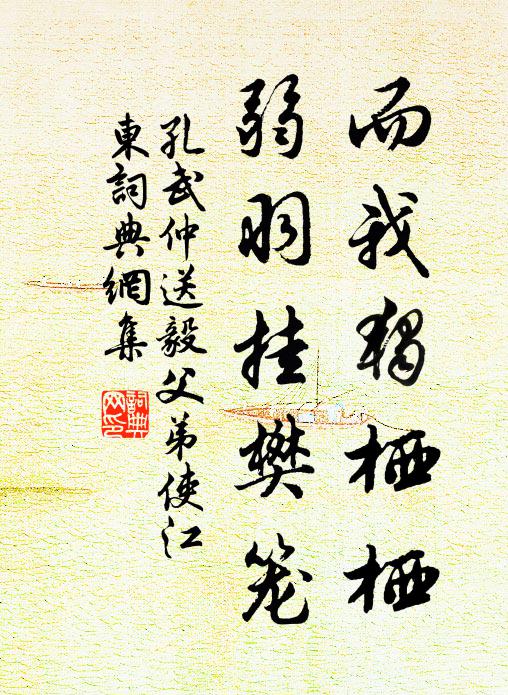 而我独栖栖
弱羽挂樊笼
孔武仲送毅父弟使江
東詞典網集
詞典
网印